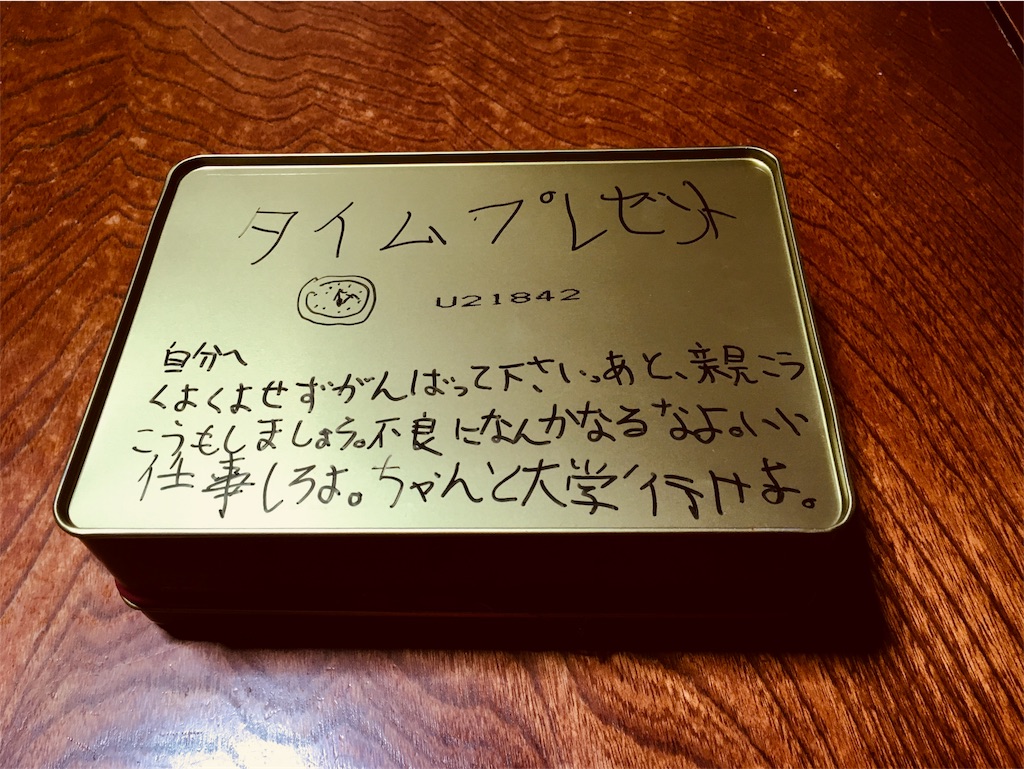 タイムプレゼント
U21842
自分へ
くよくよせずがんばって下さいっあと、親こう
こうもしましょう。不良になんかなるなよ。いい
仕事しろよ。ちゃんと大学行けよ。